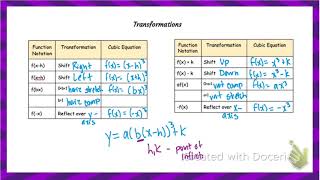 Transformations
Function Notation Transformation Cubic Equation
f(x-h) Shift Right f(x)=(x-h)³
f(x+h) Shift Left f(x)=(x+h)³
f(bx) horiz stretch horiz comp f(x)=(bx)³
f(-x) Reflect over y-axis f(x)=(-x)³
Function Notation Transformation Cubic Equation
f(x) + k Shift Up f(x)=x³+k
f(x) - k Shift Down f(x)=x³-k
af(x) vnt comp vnt stretch f(x)=ax³
-f(x) Reflect over x-axis f(x)=-x³
y=a(b(x-h))³+k
h,k - point of
with Doceri